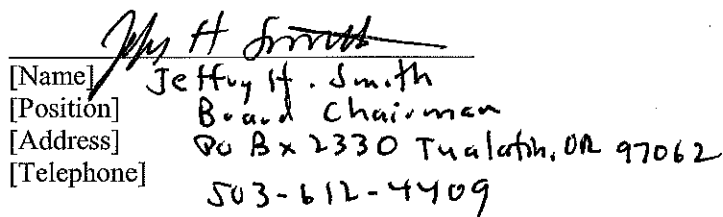 Jeffry H Smith
[Name] Jeffry H. Smith
[Position] Board Chairman
[Address] PO Bx 2330 Tualatin, OR 97062
[Telephone]
503-612-4409